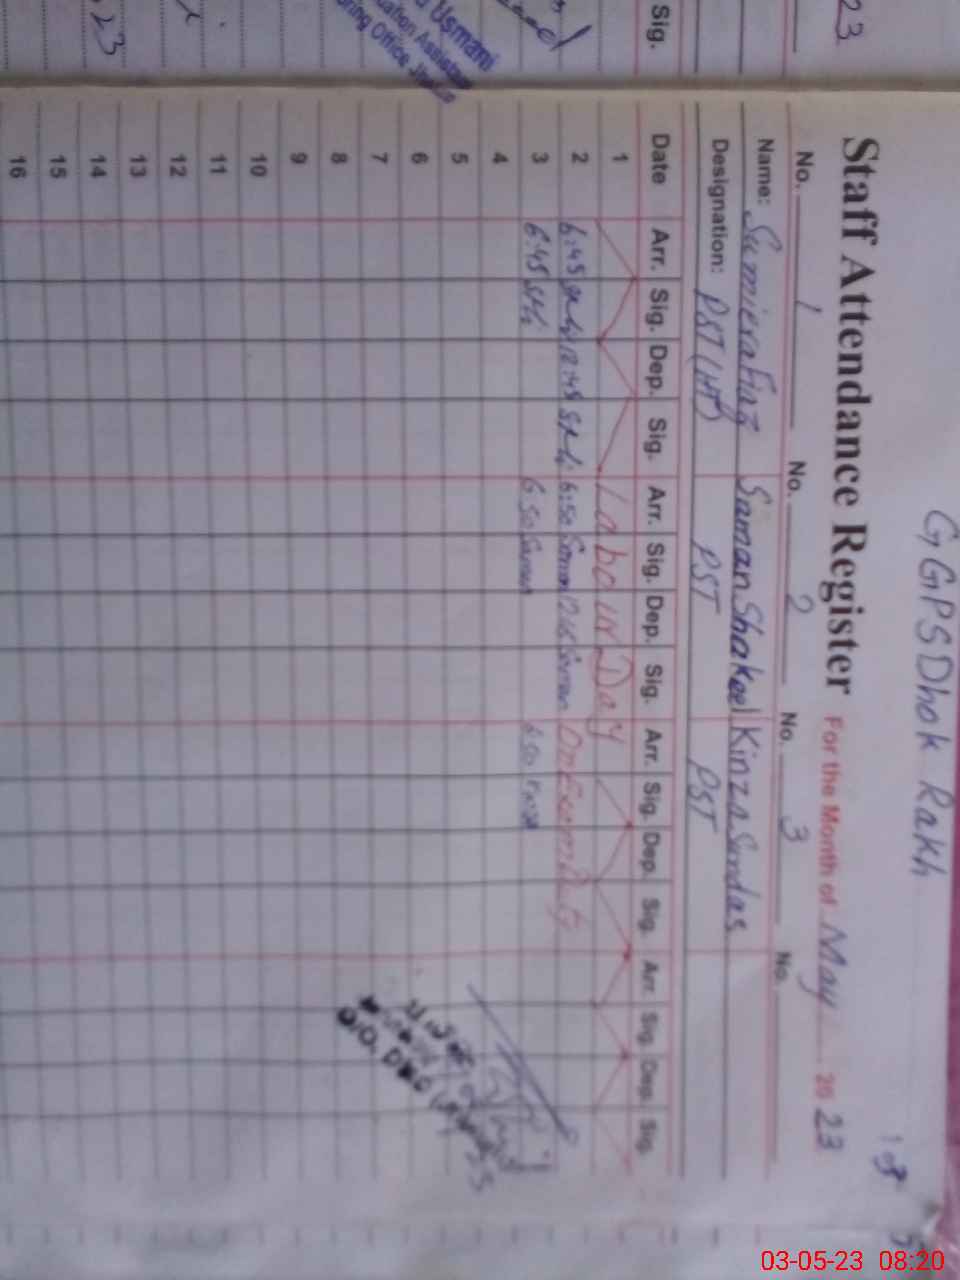 GGPS Dhok Rakh
Staff Attendance Register For the Month of May 2023
No. 1 No. 2 No. 3 No.
Name: Sumiera Fiaz Saman Shakeel Kinza Sundas
Designation: PST (HT) PST PST
Date Arr. Sig. Dep. Sig. Arr. Sig. Dep. Sig. Arr. Sig. Dep. Sig. Arr. Sig. Dep. Sig.
1 Labour Day
2 6:45 12:45 6:50 Saman 12:45 Saman On Exam Duty
3 6:45 6:50 Saman 6:50 Kinza
4
5
6
7
8
9
10
11
12
13
14
15
16
Sig.
23
Usmani
Office
23
03-05-23 08:20